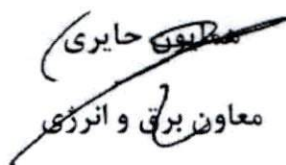 همایون حایری
معاون برق و انرژی